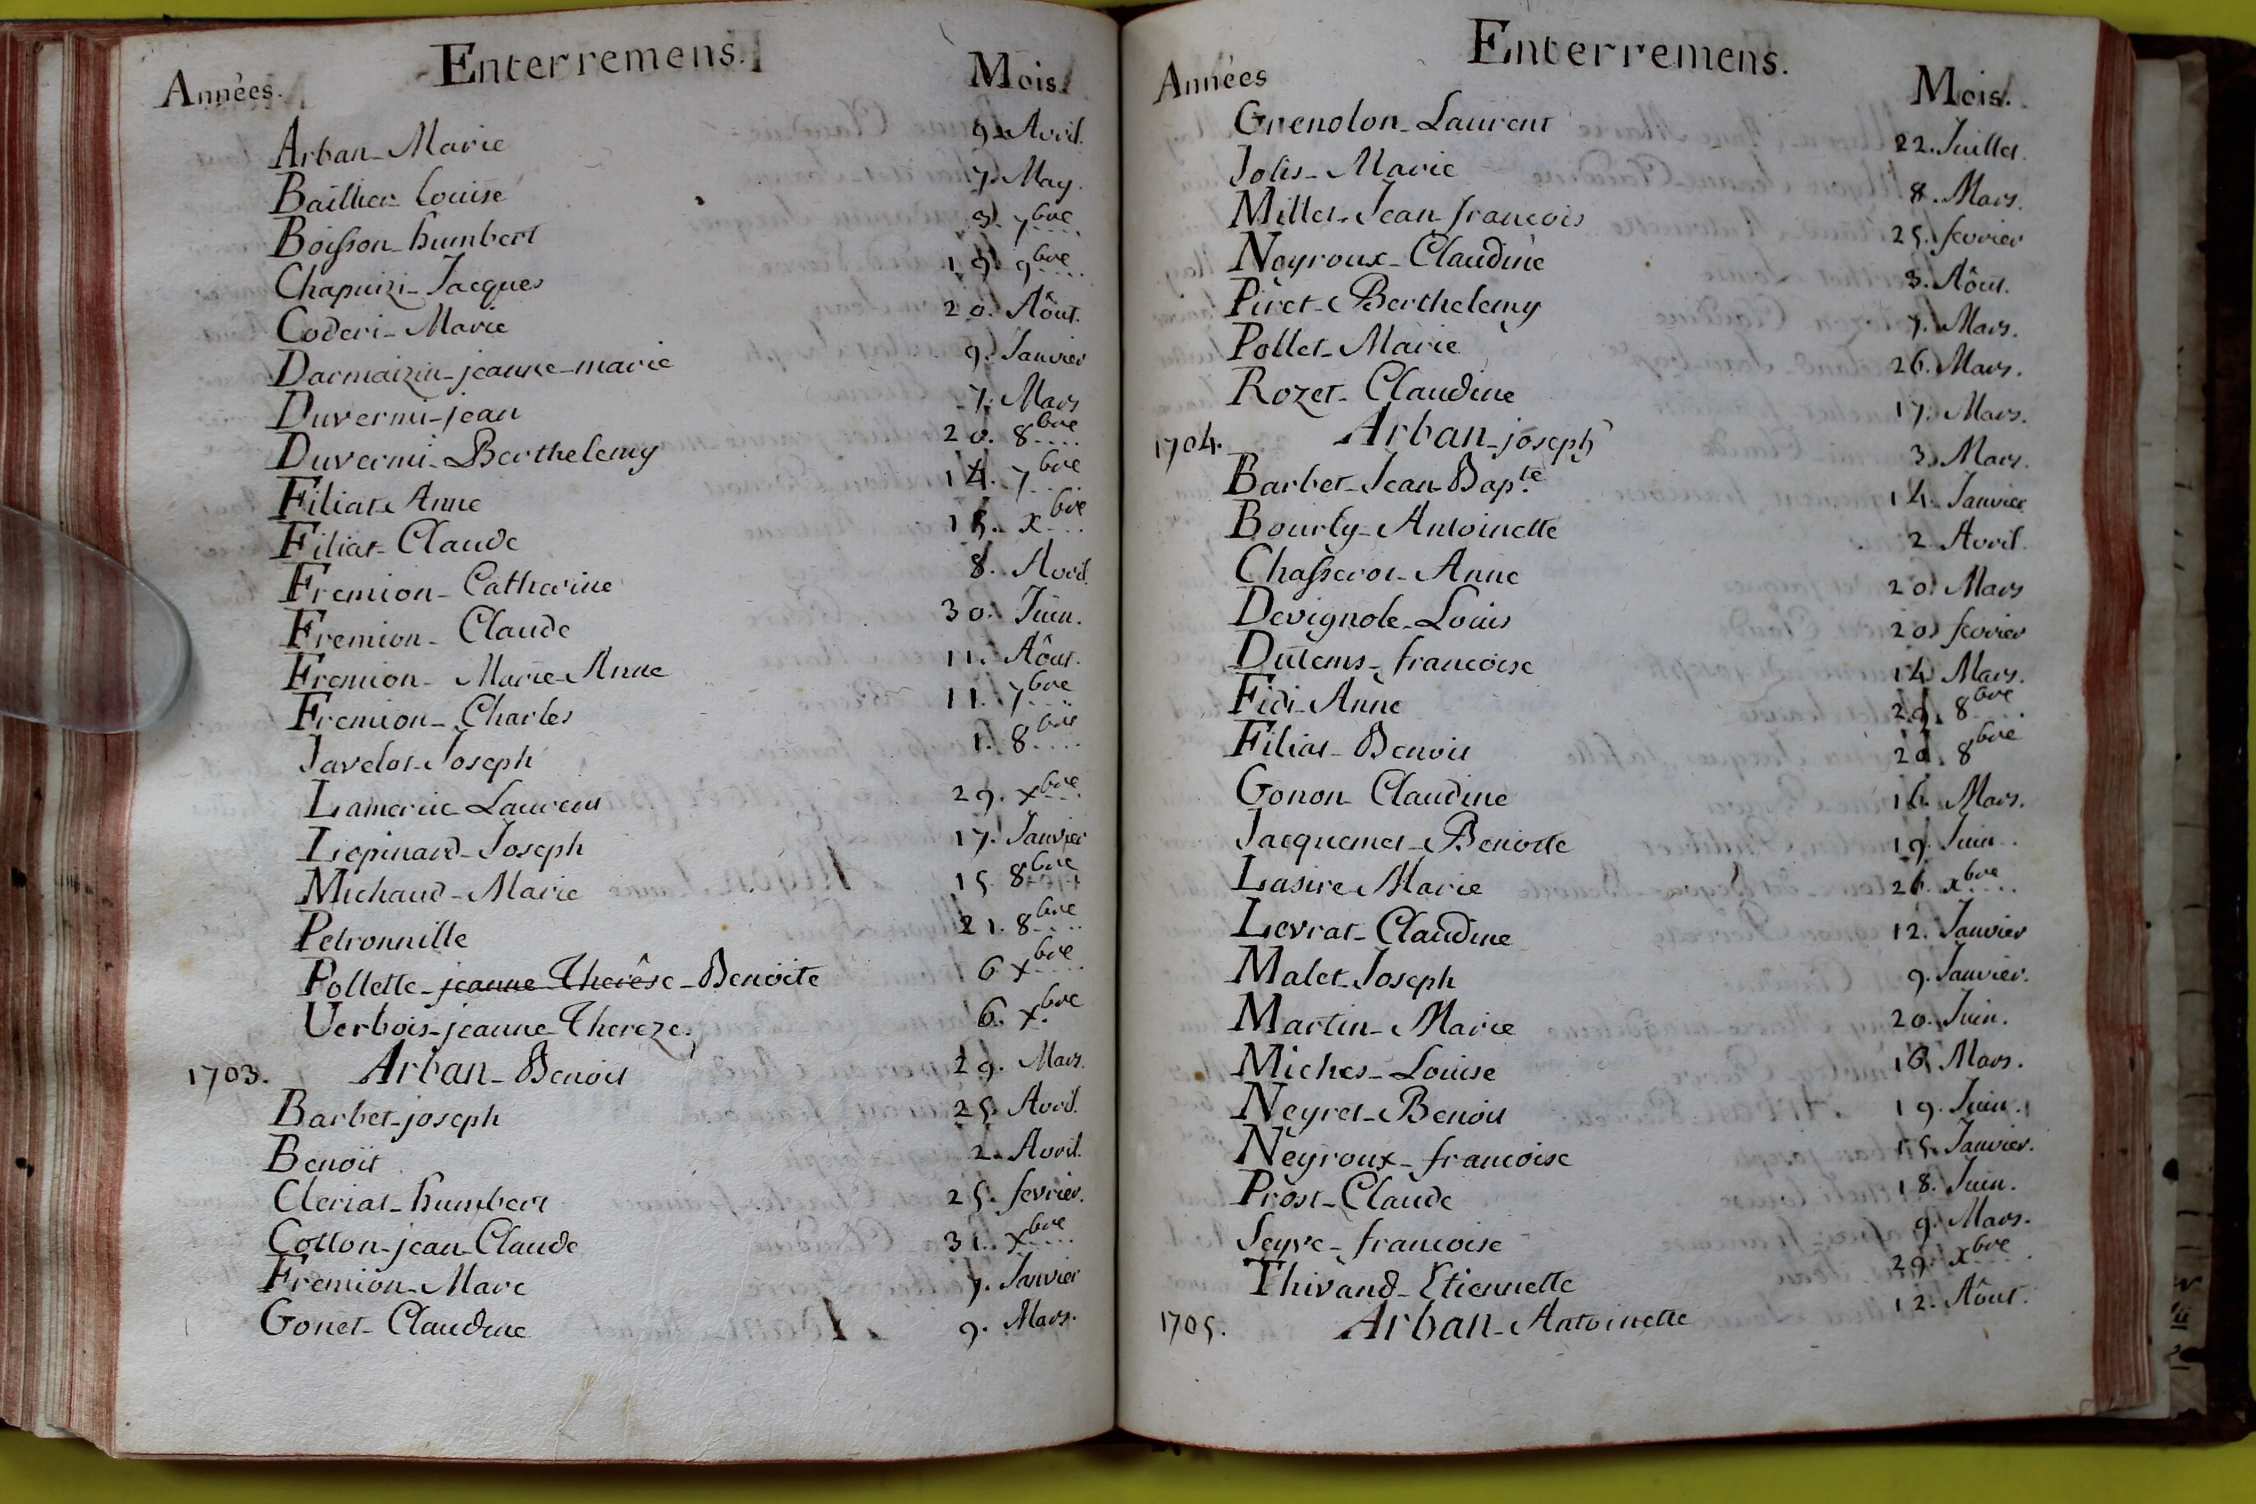 Enterremens.
Années. Mois
Arban - Marie 9. Avril.
Baillier Louise 7. May.
Boisson - humbert 9. 7bre
Chapuizi - Jacques 19. 9bre
Coderi - Marie 20. Aôut.
Darmaizin - jeanne - marie 9. Janvier
Duvermi - jean 7. Mars
Duvermi - Berthelemy 20. 8bre
Filiat Anne 14. 7bre
Filiat - Claude 15. xbre
Fremion - Catherine 8. Avril
Fremion - Claude 30. Juin.
Fremion - Marie - Anne 11. Aôut.
Fremion - Charles 11. 7bre
Javelot - Joseph 1. 8bre
Lamerie Laurens 29. xbre
Lepinard - Joseph 17. Janvier
Michaud - Marie 15. 8bre
Petronnille 21. 8bre
Pollette - jeanne Therêse - Benoite 6 xbre
Verbois - jeanne Thereze. 6. xbre
1703. Arban - Benoit 29. Mars.
Barbet - joseph 25. Avril.
Benoit 2. Avril.
Cleriat - humbert 25. fevrier.
Cotton - jean - Claude 31. xbre
Fremion - Marc 7. Janvier
Gonet - Claudine 9. Mars.
Enterremens.
Années Mois.
Grenolon - Laurent 22. Juillet.
Jolis - Marie 8. Mars.
Millet - Jean francois 25. fevrier
Neyroux - Claudine 3. Aôut.
Piret - Berthelemy 7. Mars.
Pollet - Marie 26. Mars.
Rozet - Claudine 17. Mars.
1704. Arban - joseph 3. Mars.
Barbet - Jean Bapte. 14. Janvier
Bourly - Antoinette 2 Avril.
Chasserot - Anne 20. Mars
Devignole - Louis 20. fevrier
Dutems - francoise 14. Mars.
Fidi - Anne 29. 8bre
Filiat - Benoit 20. 8bre
Gonon - Claudine 16. Mars.
Jacquemet - Benoite 19. Juin.
Lasire Marie 26. xbre
Levrat - Claudine 12. Janvier
Malet - Joseph 9. Janvier.
Martin - Marie 20. Juin.
Miches - Louise 16. Mars.
Neyret - Benoit 19. Juin.
Neyroux - francoise 15. Janvier.
Prost - Claude 18. Juin.
Seyve - francoise 9. Mars.
Thivand - Etiennette 29. xbre
1705. Arban - Antoinette 12. Aôut.